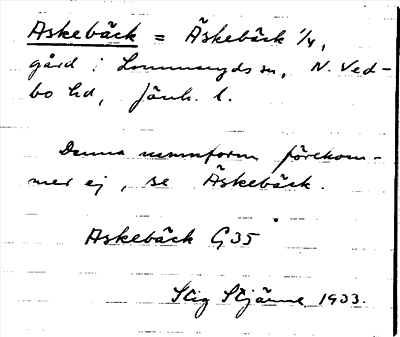 Askebäck = Äskebäck 1/4,
gård i Lommaryds sn, N. Ved-
bo hd, Jönk. l.
Denna namnform förekom-
mer ej, se Äskebäck.
Askebäck G35
Stig Stjärne 1933.